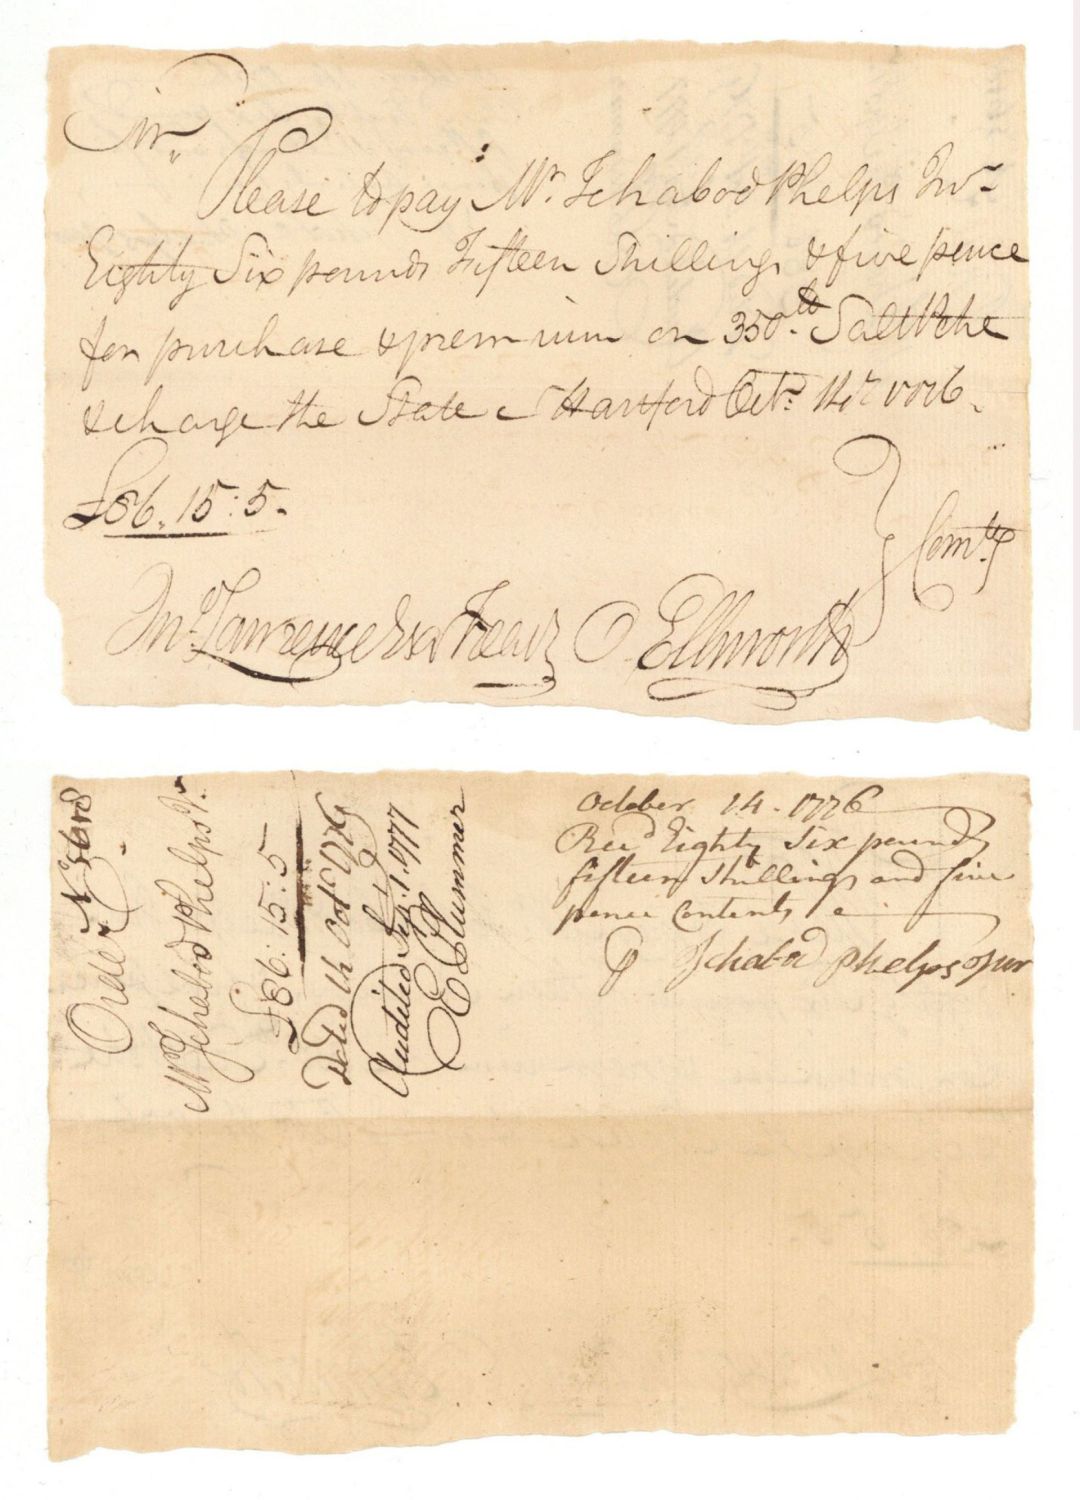 Sir,,
Please to pay Mr. Ichabod Phelps Junr
Eighty Six pounds Fifteen Shillings & five pence
for purchase & premium on 350.lb Salt Petre
& charge the State - Hartford Octr. 1776.
£86.15:5.
Comtee
Jno. Lawrence Esqr Treasr O Ellsworth
October 14. 1776
Recd Eighty Six pounds
fifteen Shillings and five
pence Contents
Ichabod Phelps Jur
Order No
Mr Ichabod Phelps Jr.
£86:15:5
Dated Octr 1776
Audited Sep. 1. 1777